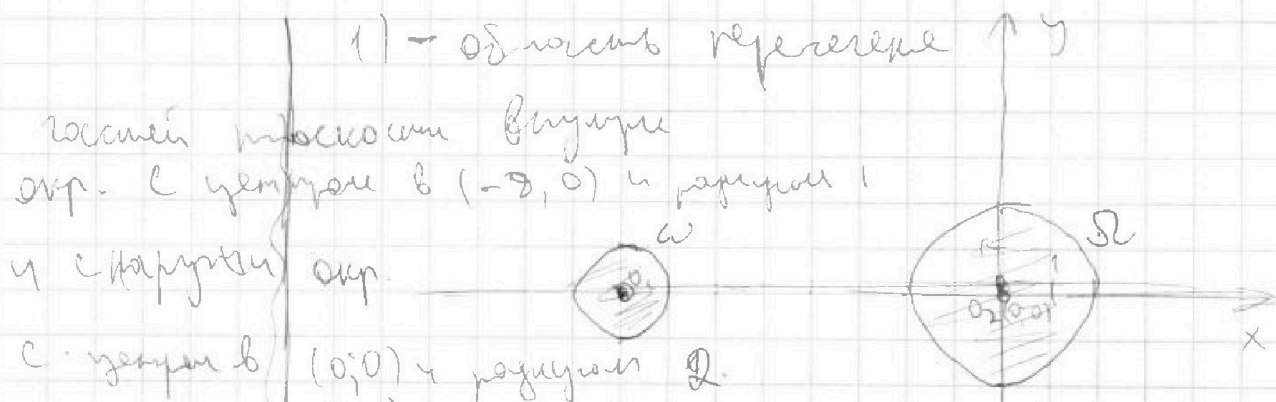 1) - область пересечения y
частей плоскости внутри
окр. с центром в (-8, 0) и радиусом 1
ω Ω
и снаружи окр. O₁
O₂ (0,0)
x
с центром в (0;0) и радиусом 2.